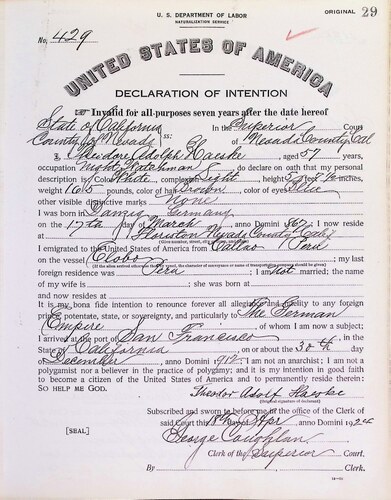 U. S. DEPARTMENT OF LABOR
NATURALIZATION SERVICE
ORIGINAL 29
No. 429
UNITED STATES OF AMERICA
DECLARATION OF INTENTION
Invalid for all purposes seven years after the date hereof
State of California
County of Nevada ss: In the Superior Court
of Nevada County, Cal
I, Theodore Adolph Haucke, aged 57 years,
occupation Night Watchman, do declare on oath that my personal
description is: Color White, complexion Light, height 5 feet inches,
weight 165 pounds, color of hair Brown, color of eyes Blue
other visible distinctive marks None
I was born in Danzig Germany
on the 17th day of March, anno Domini 1867; I now reside
at Nevada County, Calif
I emigrated to the United States of America from Callao Peru
on the vessel Globo; my last
foreign residence was Peru; I am not married; the name
of my wife is ; she was born at
and now resides at
It is my bona fide intention to renounce forever all allegiance and fidelity to any foreign
prince, potentate, state, or sovereignty, and particularly to The German
Empire, of whom I am now a subject;
I arrived at the port of San Francisco, in the
State of California, on or about the 30th day
of December, anno Domini 1912; I am not an anarchist; I am not a
polygamist nor a believer in the practice of polygamy; and it is my intention in good faith
to become a citizen of the United States of America and to permanently reside therein:
SO HELP ME GOD.
Theodor Adolf Haucke
(Original signature of declarant)
Subscribed and sworn to before me in the office of the Clerk of
[SEAL] said Court this 18th day of Apr, anno Domini 1924
George Coughlan
Clerk of the Superior Court.
By , Clerk.